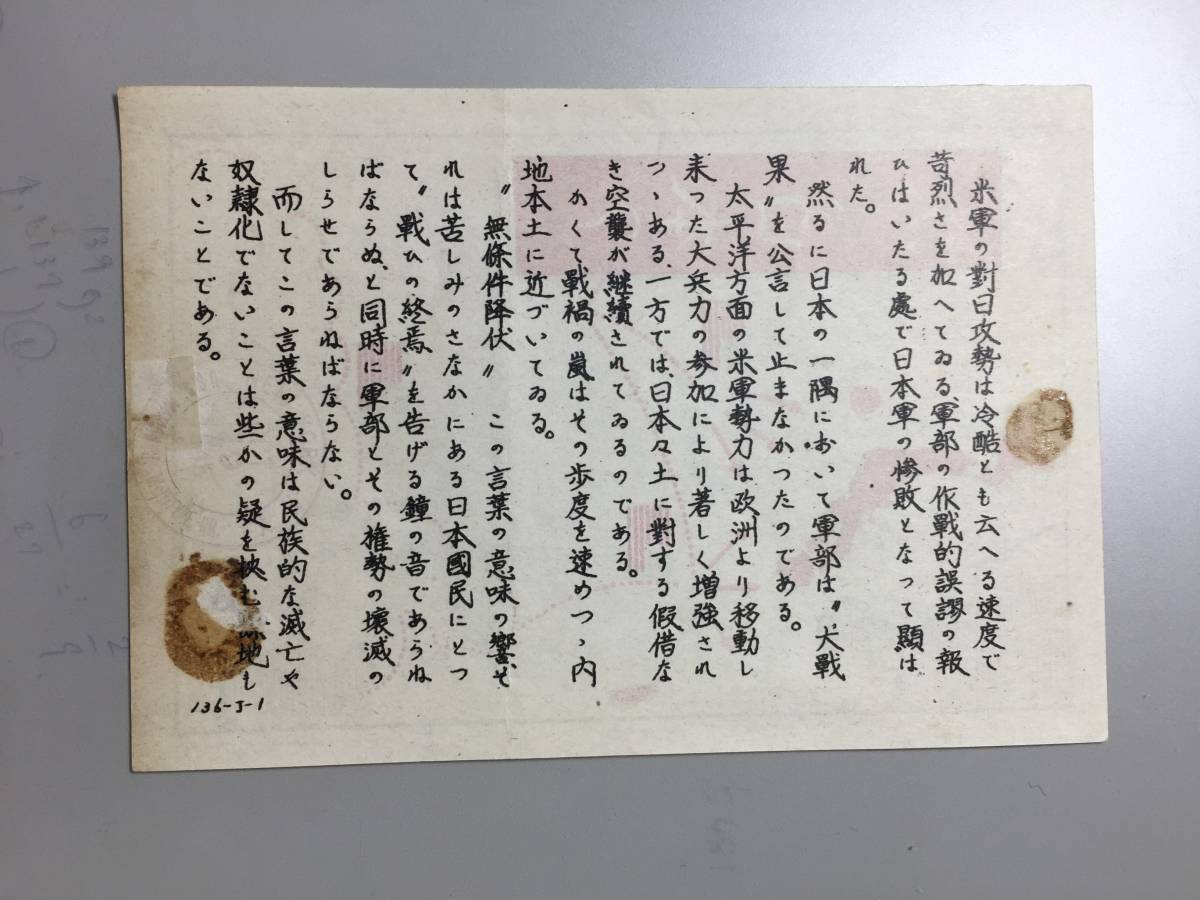 米軍の對日攻勢は冷酷とも云へる速度で
苛烈さを加へてゐる、軍部の作戰的誤謬の報
ひはいたる處で日本軍の慘敗となって顯は
れた。
然るに日本の一隅において軍部は〝大戰
果〟を公言して止まなかつたのである。
太平洋方面の米軍勢力は欧洲より移動し
来つた大兵力の参加により著しく増強され
つゝある、一方では、日本々土に對する假借な
き空襲が継續されてゐるのである。
かくて戰禍の嵐はその歩度を速めつゝ内
地本土に近づいてゐる。
〝無條件降伏〟 この言葉の意味の響、そ
れは苦しみのさなかにある日本國民にとつ
て〝戰ひの終焉〟を告げる鐘の音であらね
ばならぬ、と同時に軍部とその権勢の壊滅の
しらせであらねばならない。
而してこの言葉の意味は民族的な滅亡や
奴隷化でないことは些かの疑を挾む 地も
ないことである。
136-J-1